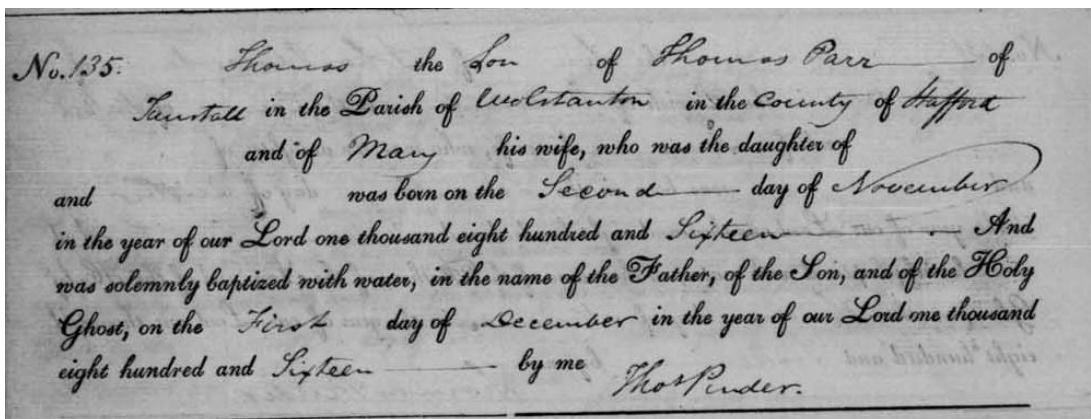 No. 135. Thomas the Son of Thomas Parr of
Tunstall in the Parish of Wolstanton in the County of Stafford
and of Mary his wife, who was the daughter of
and was born on the Second day of November
in the year of our Lord one thousand eight hundred and Sixteen And
was solemnly baptized with water, in the name of the Father, of the Son, and of the Holy
Ghost, on the First day of December in the year of our Lord one thousand
eight hundred and Sixteen by me
Thos Pinder.